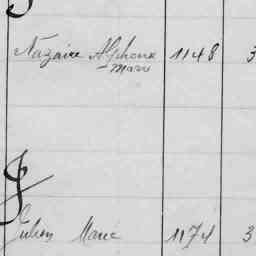 Nazaire Alphonse 1148 3
Marie
J
Julien Marie 1174 3